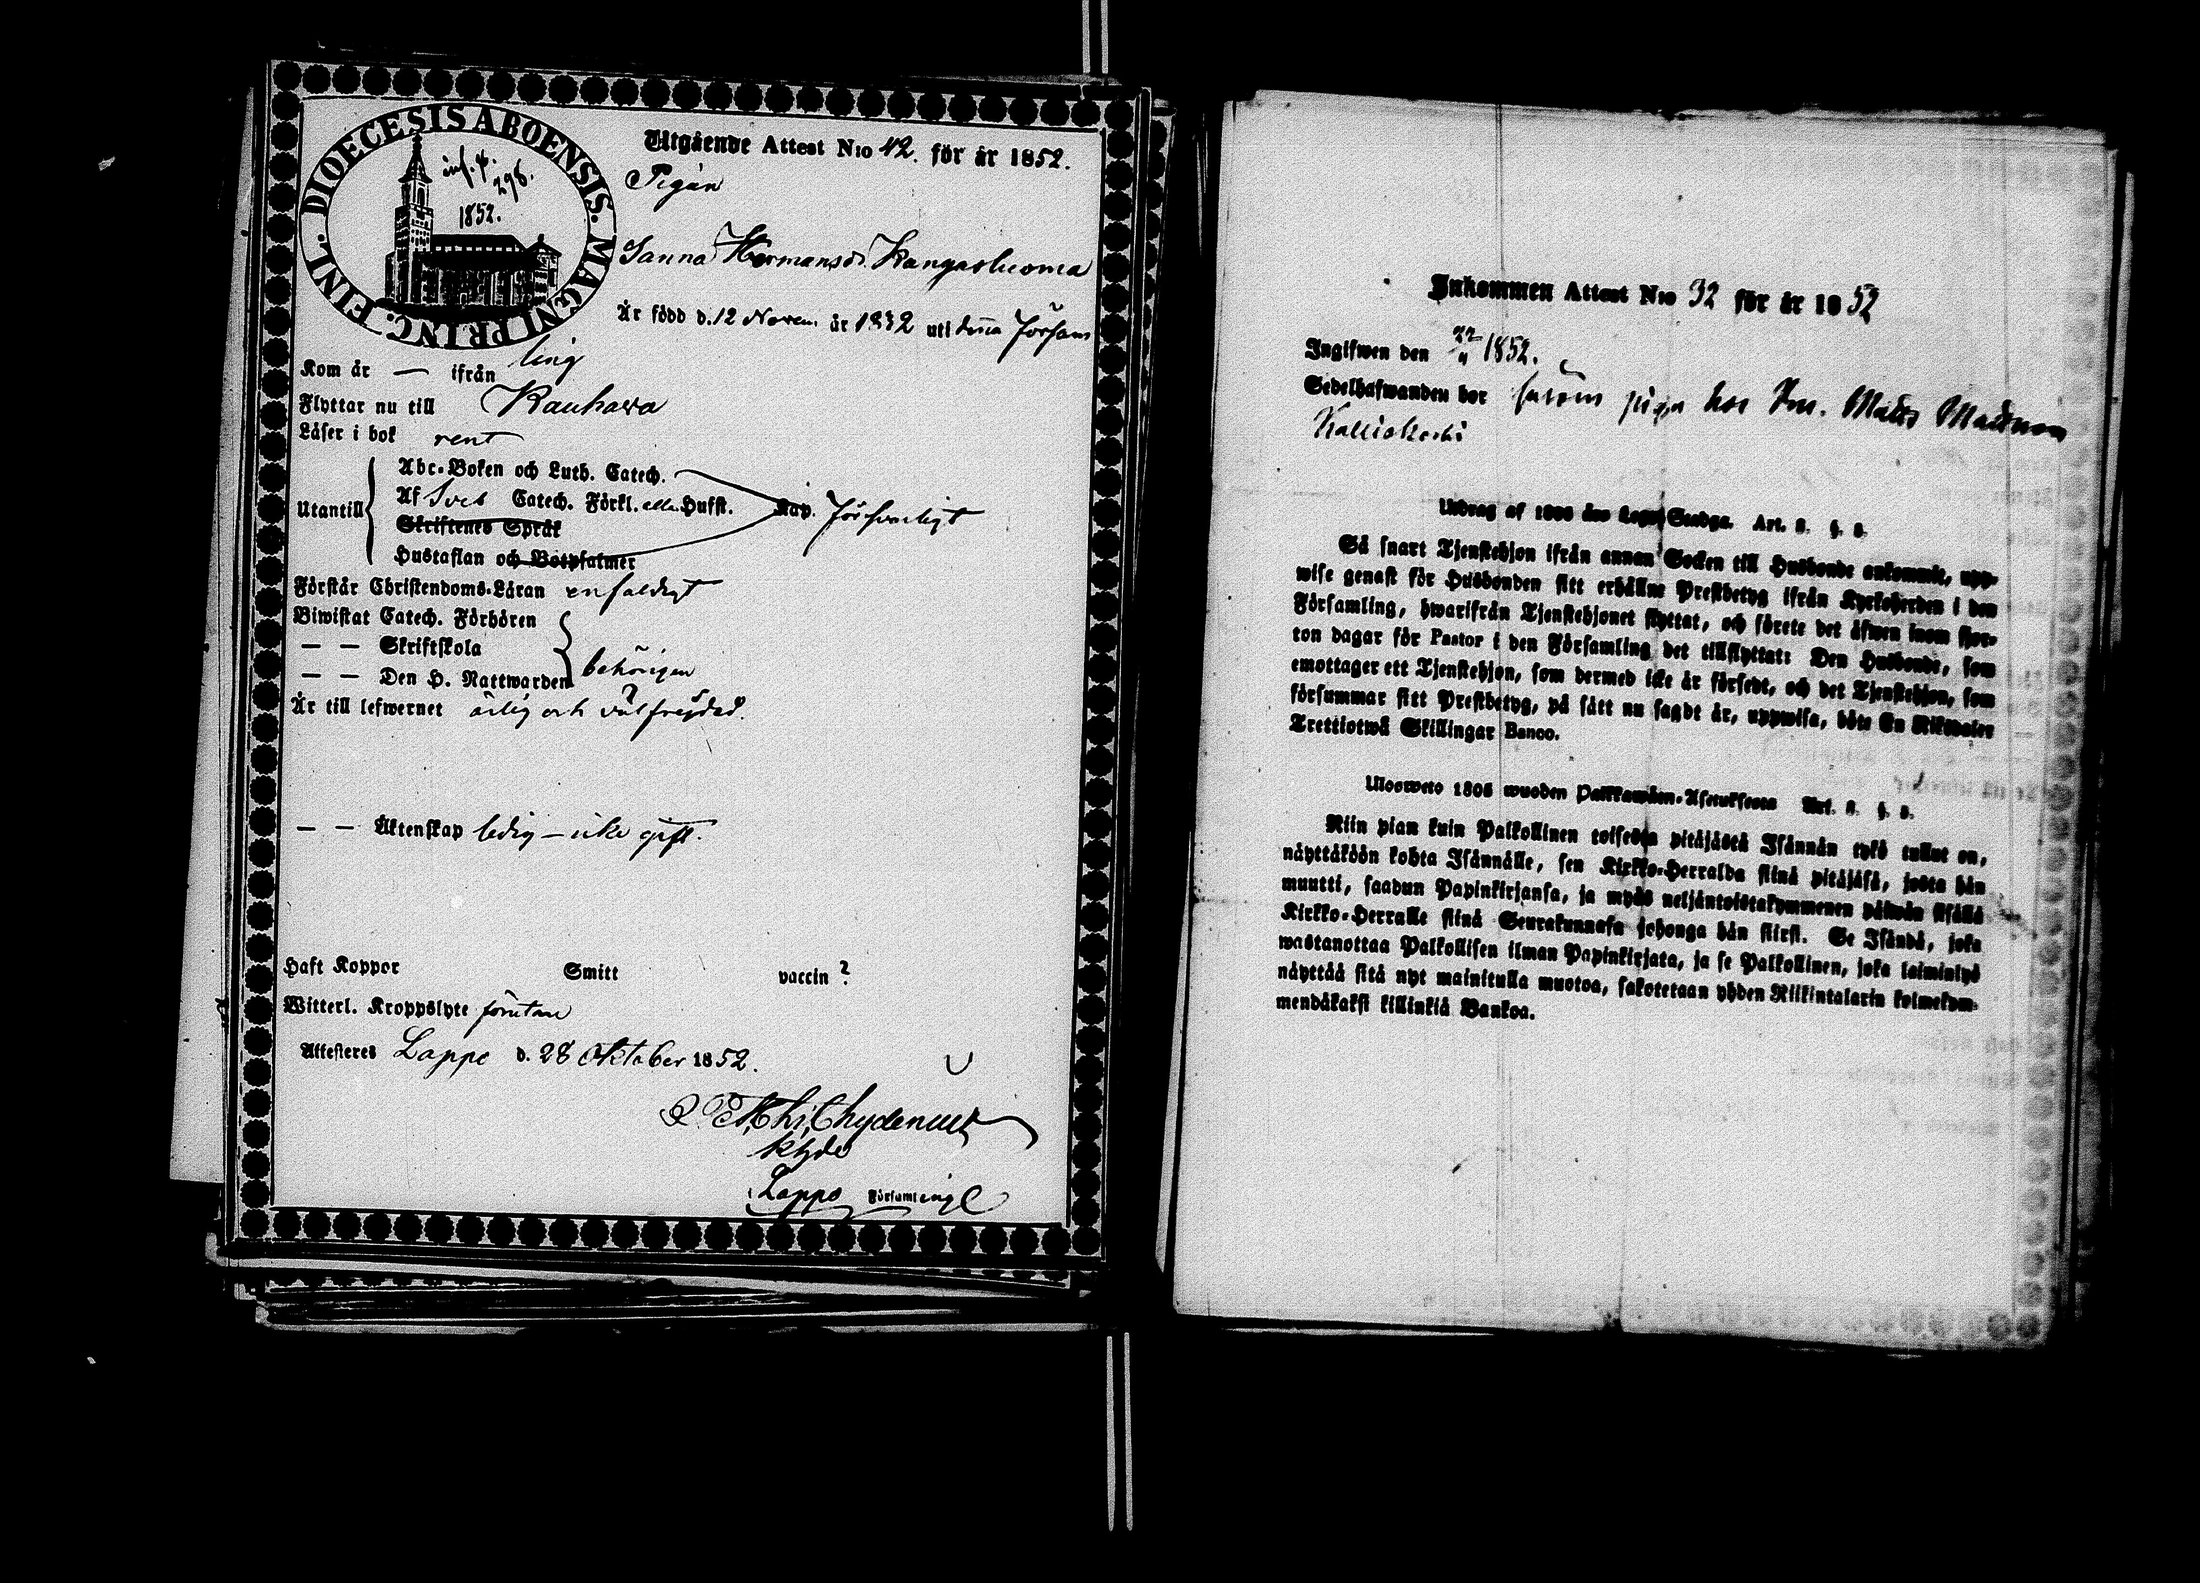 DIOECESIS ABOENSIS. MAGNI PRINC. FINL.
inf. p.
298.
1852.
Utgående Attest N:o 42. för år 1852.
Pigan
Sanna Hermansd. Kangasluoma
Är född d. 12 Novem. år 1832 uti denna Försam
ling
Kom år — ifrån
Flyttar nu till Kauhava
Läser i bok rent
Abc-Boken och Luth. Catech.
Utantill Af Sveb Catech. Förkl. elle Husst. Kap. försvarligt
Skriftenes Språk
Hustaflan och Botpsalmer
Förstår Christendoms-Läran enfaldigt
Biwistat Catech. Förhören
— — Skriftskola
— — Den H. Nattwarden behörigen
Är till lefwernet ärlig och välfrejdad.
— — Äktenskap ledig — icke gift.
Haft Koppor Smitt vaccin?
Witterl. Kroppslyte förutan
Attesteres Lappo d. 28 Oktober 1852.
Chydenius
Lappo Församling
Inkommen Attest N:o 32 för år 1852
Ingifwen den 22/11 1852.
Sedelhafwanden bor såsom piga hos Matts Mattson
Kalliokoski
Utdrag af 1805 års Lego-Stadga. Art. §.
Så snart Tjenstehjon ifrån annan Socken till Husbonde ankommit, upp-
wise genast för Husbonden sitt erhållne Prestbetyg ifrån Kyrkoherden i den
Församling, hwarifrån Tjenstehjonet flyttat, och förete det äfwen inom fjor-
ton dagar för Pastor i den Församling det tillflyttat: Den Husbonde, som
emottager ett Tjenstehjon, som dermed icke är försedt, och det Tjenstehjon, som
försummar sitt Prestbetyg, på sätt nu sagdt är, uppwisa, böte En Riksdaler
Trettiotwå Skillingar Banco.
Ulosweto 1805 wuoden Palkkawäen-Asetuksesta Art. §.
Niin pian kuin Palkollinen toisesta pitäjästä Isännän tykö tullut on,
näyttäköön kohta Isännälle, sen Kirkko-Herralda siinä pitäjäsä, josta hän
muutti, saadun Papinkirjansa, ja myös neljäntoistakymmenen päiwän sisällä
Kirkko-Herralle siinä Seurakunnasa johonga hän siirsi. Se Isändä, joka
wastanottaa Palkollisen ilman Papinkirjata, ja se Palkollinen, joka laiminlyö
näyttää sitä nyt mainitulla muotoa, sakotetaan yhden Riikintalarin kolmekym-
mendäkaksi killinkiä Bankoa.